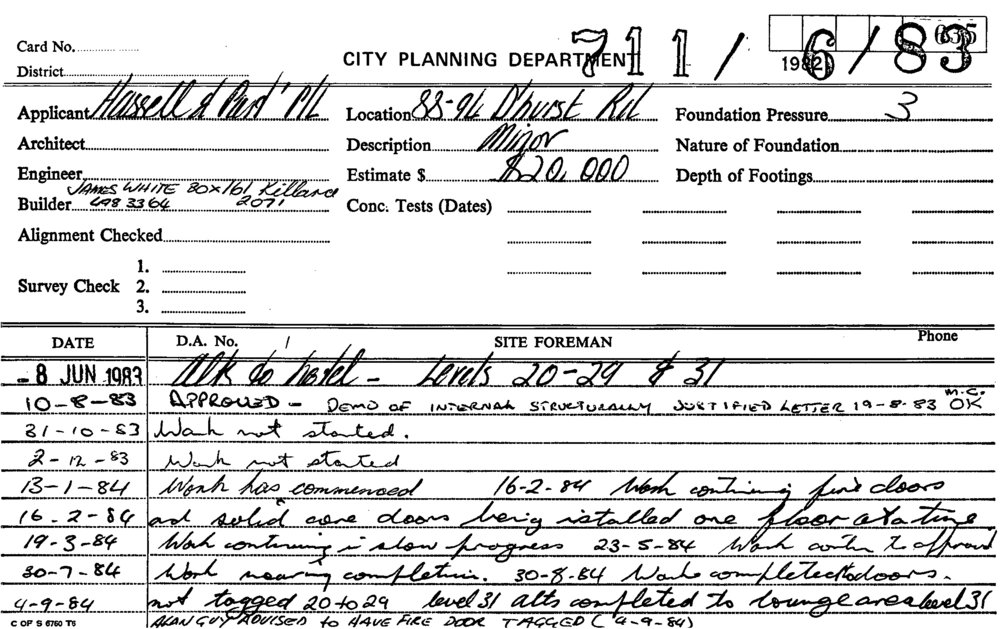 635
Card No.
CITY PLANNING DEPARTMENT 711/6/83
1982
District
Applicant Hassell & Part' P/L Location 88-94 D'hurst Rd Foundation Pressure 3
Architect Description Minor Nature of Foundation
Engineer Estimate $ $20,000 Depth of Footings
JAMES WHITE BOX 161 Killara
Builder 498 3364 2071 Conc. Tests (Dates)
Alignment Checked
1.
Survey Check 2.
3.
DATE D.A. No. / SITE FOREMAN Phone
- 8 JUN 1983 Alts to hotel - Levels 20-29 & 31
10-8-83 APPROVED - DEMO OF INTERNAL STRUCTURALLY JUSTIFIED LETTER 19-8-83 M.C. OK
31-10-83 Work not started.
2-12-83 Work not started
13-1-84 Work has commenced 16-2-84 Work continuing fire doors
16-2-84 and solid core doors being installed one floor at a time
19-3-84 Work continuing in slow progress 23-5-84 Work contin to approval
30-7-84 Work nearing completion. 30-8-84 Work completed doors.
4-9-84 not tagged 20 to 29 level 31 alts completed to lounge area level 31
C OF S 6760 T6 ALAN GUY ADVISED to HAVE FIRE DOOR TAGGED (4-9-84)